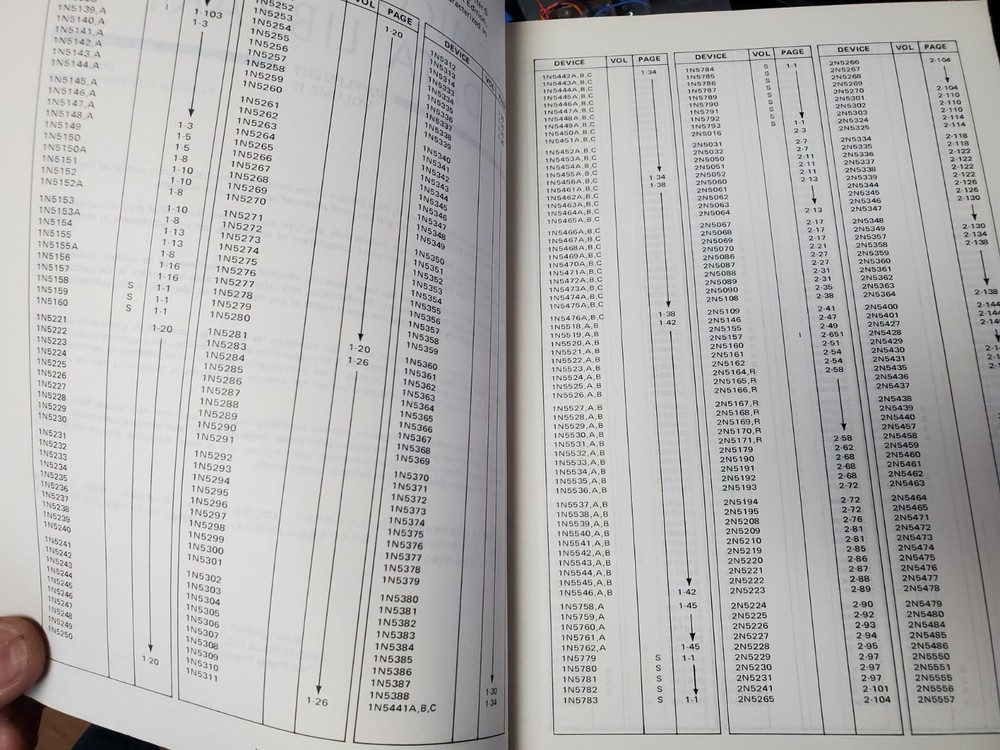 1N5139,A
1-103
1N5141,A
1-3
1N5142,A
1N5143,A
1N5144,A
1N5145,A
1N5146,A
1N5147,A
1N5148,A
1N5149 1-3
1N5150 1-5
1N5150A 1-5
1N5151 1-8
1N5152 1-10
1N5152A 1-10
1-8
1N5153 1-10
1N5153A 1-8
1N5154 1-13
1N5155 1-13
1N5155A 1-8
1N5156 1-16
1N5157 1-16
1N5158 S 1-1
1N5159 S 1-1
1N5160 S 1-1
1N5221 1-20
1N5222
1N5223
1N5224
1N5225
1N5226
1N5227
1N5228
1N5229
1N5230
1N5231
1N5232
1N5233
1N5234
1N5235
1N5236
1N5237
1N5238
1N5239
1N5240
1N5241
1N5242
1N5243
1N5244
1N5245
1N5246
1N5247
1N5248
1N5249
1N5250 1-20
VOL PAGE
1N5252 1-20
1N5253
1N5254
1N5255
1N5256
1N5257
1N5258
1N5259
1N5260
1N5261
1N5262
1N5263
1N5264
1N5265
1N5266
1N5267
1N5268
1N5269
1N5270
1N5271
1N5272
1N5273
1N5274
1N5275
1N5276
1N5277
1N5278
1N5279
1N5280
1N5281 1-20
1N5283 1-26
1N5284
1N5285
1N5286
1N5287
1N5288
1N5289
1N5290
1N5291
1N5292
1N5293
1N5294
1N5295
1N5296
1N5297
1N5298
1N5299
1N5300
1N5301
1N5302
1N5303
1N5304
1N5305
1N5306
1N5307
1N5308
1N5309
1N5310
1N5311 1-26
DEVICE
1N5312
1N5313
1N5314
1N5333
1N5334
1N5335
1N5336
1N5337
1N5338
1N5339
1N5340
1N5341
1N5342
1N5343
1N5344
1N5345
1N5346
1N5347
1N5348
1N5349
1N5350
1N5351
1N5352
1N5353
1N5354
1N5355
1N5356
1N5357
1N5358
1N5359
1N5360
1N5361
1N5362
1N5363
1N5364
1N5365
1N5366
1N5367
1N5368
1N5369
1N5370
1N5371
1N5372
1N5373
1N5374
1N5375
1N5376
1N5377
1N5378
1N5379
1N5380
1N5381
1N5382
1N5383
1N5384
1N5385
1N5386
1N5387
1N5388 1-30
1N5441A,B,C 1-34
DEVICE VOL PAGE
1N5442A,B,C 1-34
1N5443A,B,C
1N5444A,B,C
1N5445A,B,C
1N5446A,B,C
1N5447A,B,C
1N5448A,B,C
1N5449A,B,C
1N5450A,B,C
1N5451A,B,C
1N5452A,B,C
1N5453A,B,C
1N5454A,B,C
1N5455A,B,C
1N5456A,B,C 1-34
1N5461A,B,C 1-38
1N5462A,B,C
1N5463A,B,C
1N5464A,B,C
1N5465A,B,C
1N5466A,B,C
1N5467A,B,C
1N5468A,B,C
1N5469A,B,C
1N5470A,B,C
1N5471A,B,C
1N5472A,B,C
1N5473A,B,C
1N5474A,B,C
1N5475A,B,C
1N5476A,B,C 1-38
1N5518,A,B 1-42
1N5519,A,B
1N5520,A,B
1N5521,A,B
1N5522,A,B
1N5523,A,B
1N5524,A,B
1N5525,A,B
1N5526,A,B
1N5527,A,B
1N5528,A,B
1N5529,A,B
1N5530,A,B
1N5531,A,B
1N5532,A,B
1N5533,A,B
1N5534,A,B
1N5535,A,B
1N5536,A,B
1N5537,A,B
1N5538,A,B
1N5539,A,B
1N5540,A,B
1N5541,A,B
1N5542,A,B
1N5543,A,B
1N5544,A,B
1N5545,A,B
1N5546,A,B 1-42
1N5758,A 1-45
1N5759,A
1N5760,A
1N5761,A
1N5762,A 1-45
1N5779 S 1-1
1N5780 S
1N5781 S
1N5782 S
1N5783 S 1-1
DEVICE VOL PAGE
1N5784 S 1-1
1N5785 S
1N5786 S
1N5787 S
1N5789 S
1N5790 S
1N5791 S
1N5792 S
1N5793 S 1-1
2N5016 2-3
2N5031 2-7
2N5032 2-7
2N5050 2-11
2N5051 2-11
2N5052 2-11
2N5060 2-13
2N5061
2N5062
2N5063
2N5064 2-13
2N5067 2-17
2N5068 2-17
2N5069 2-17
2N5070 2-21
2N5086 2-27
2N5087 2-27
2N5088 2-31
2N5089 2-31
2N5090 2-35
2N5108 2-38
2N5109 2-41
2N5146 2-47
2N5155 2-49
2N5157 I 2-651
2N5160 2-51
2N5161 2-54
2N5162 2-54
2N5164,R 2-58
2N5165,R
2N5166,R
2N5167,R
2N5168,R
2N5169,R
2N5170,R
2N5171,R 2-58
2N5179 2-62
2N5190 2-68
2N5191 2-68
2N5192 2-68
2N5193 2-72
2N5194 2-72
2N5195 2-72
2N5208 2-76
2N5209 2-81
2N5210 2-81
2N5219 2-85
2N5220 2-86
2N5221 2-87
2N5222 2-88
2N5223 2-89
2N5224 2-90
2N5225 2-92
2N5226 2-93
2N5227 2-94
2N5228 2-95
2N5229 2-97
2N5230 2-97
2N5231 2-97
2N5241 2-101
2N5265 2-104
DEVICE VOL PAGE
2N5266 2-104
2N5267
2N5268
2N5269
2N5270 2-104
2N5301 2-110
2N5302 2-110
2N5303 2-110
2N5324 2-114
2N5325 2-114
2N5334 2-118
2N5335 2-118
2N5336 2-122
2N5337 2-122
2N5338 2-122
2N5339 2-122
2N5344 2-126
2N5345 2-126
2N5346 2-130
2N5347
2N5348
2N5349 2-130
2N5357 2-134
2N5358 2-138
2N5359
2N5360
2N5361
2N5362
2N5363
2N5364 2-138
2N5400 2-144
2N5401
2N5427
2N5428
2N5429
2N5430
2N5431
2N5435
2N5436
2N5437
2N5438
2N5439
2N5440
2N5457
2N5458
2N5459
2N5460
2N5461
2N5462
2N5463
2N5464
2N5465
2N5471
2N5472
2N5473
2N5474
2N5475
2N5476
2N5477
2N5478
2N5479
2N5480
2N5484
2N5485
2N5486
2N5550
2N5551
2N5555
2N5556
2N5557